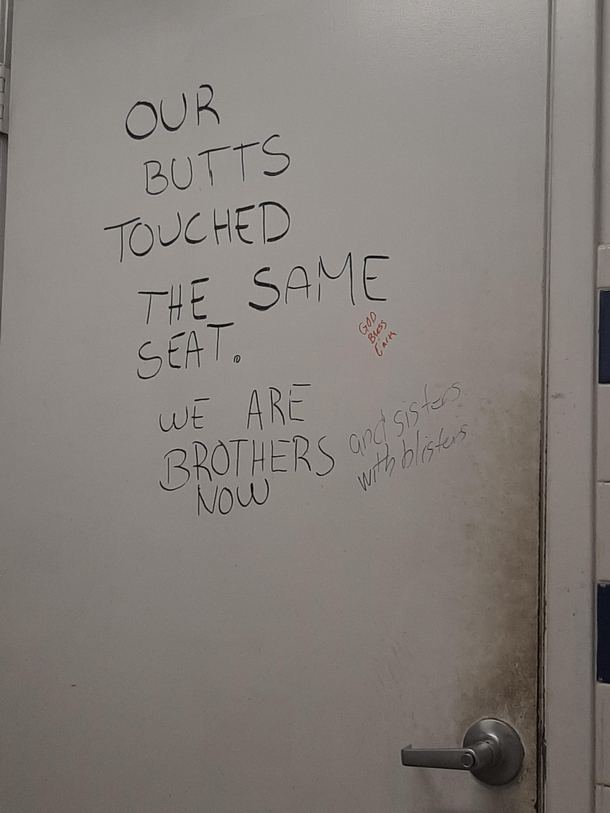 OUR
BUTTS
TOUCHED
THE SAME
SEAT.
GOD
BLESS
WE ARE
BROTHERS
NOW
and sisters
with blisters